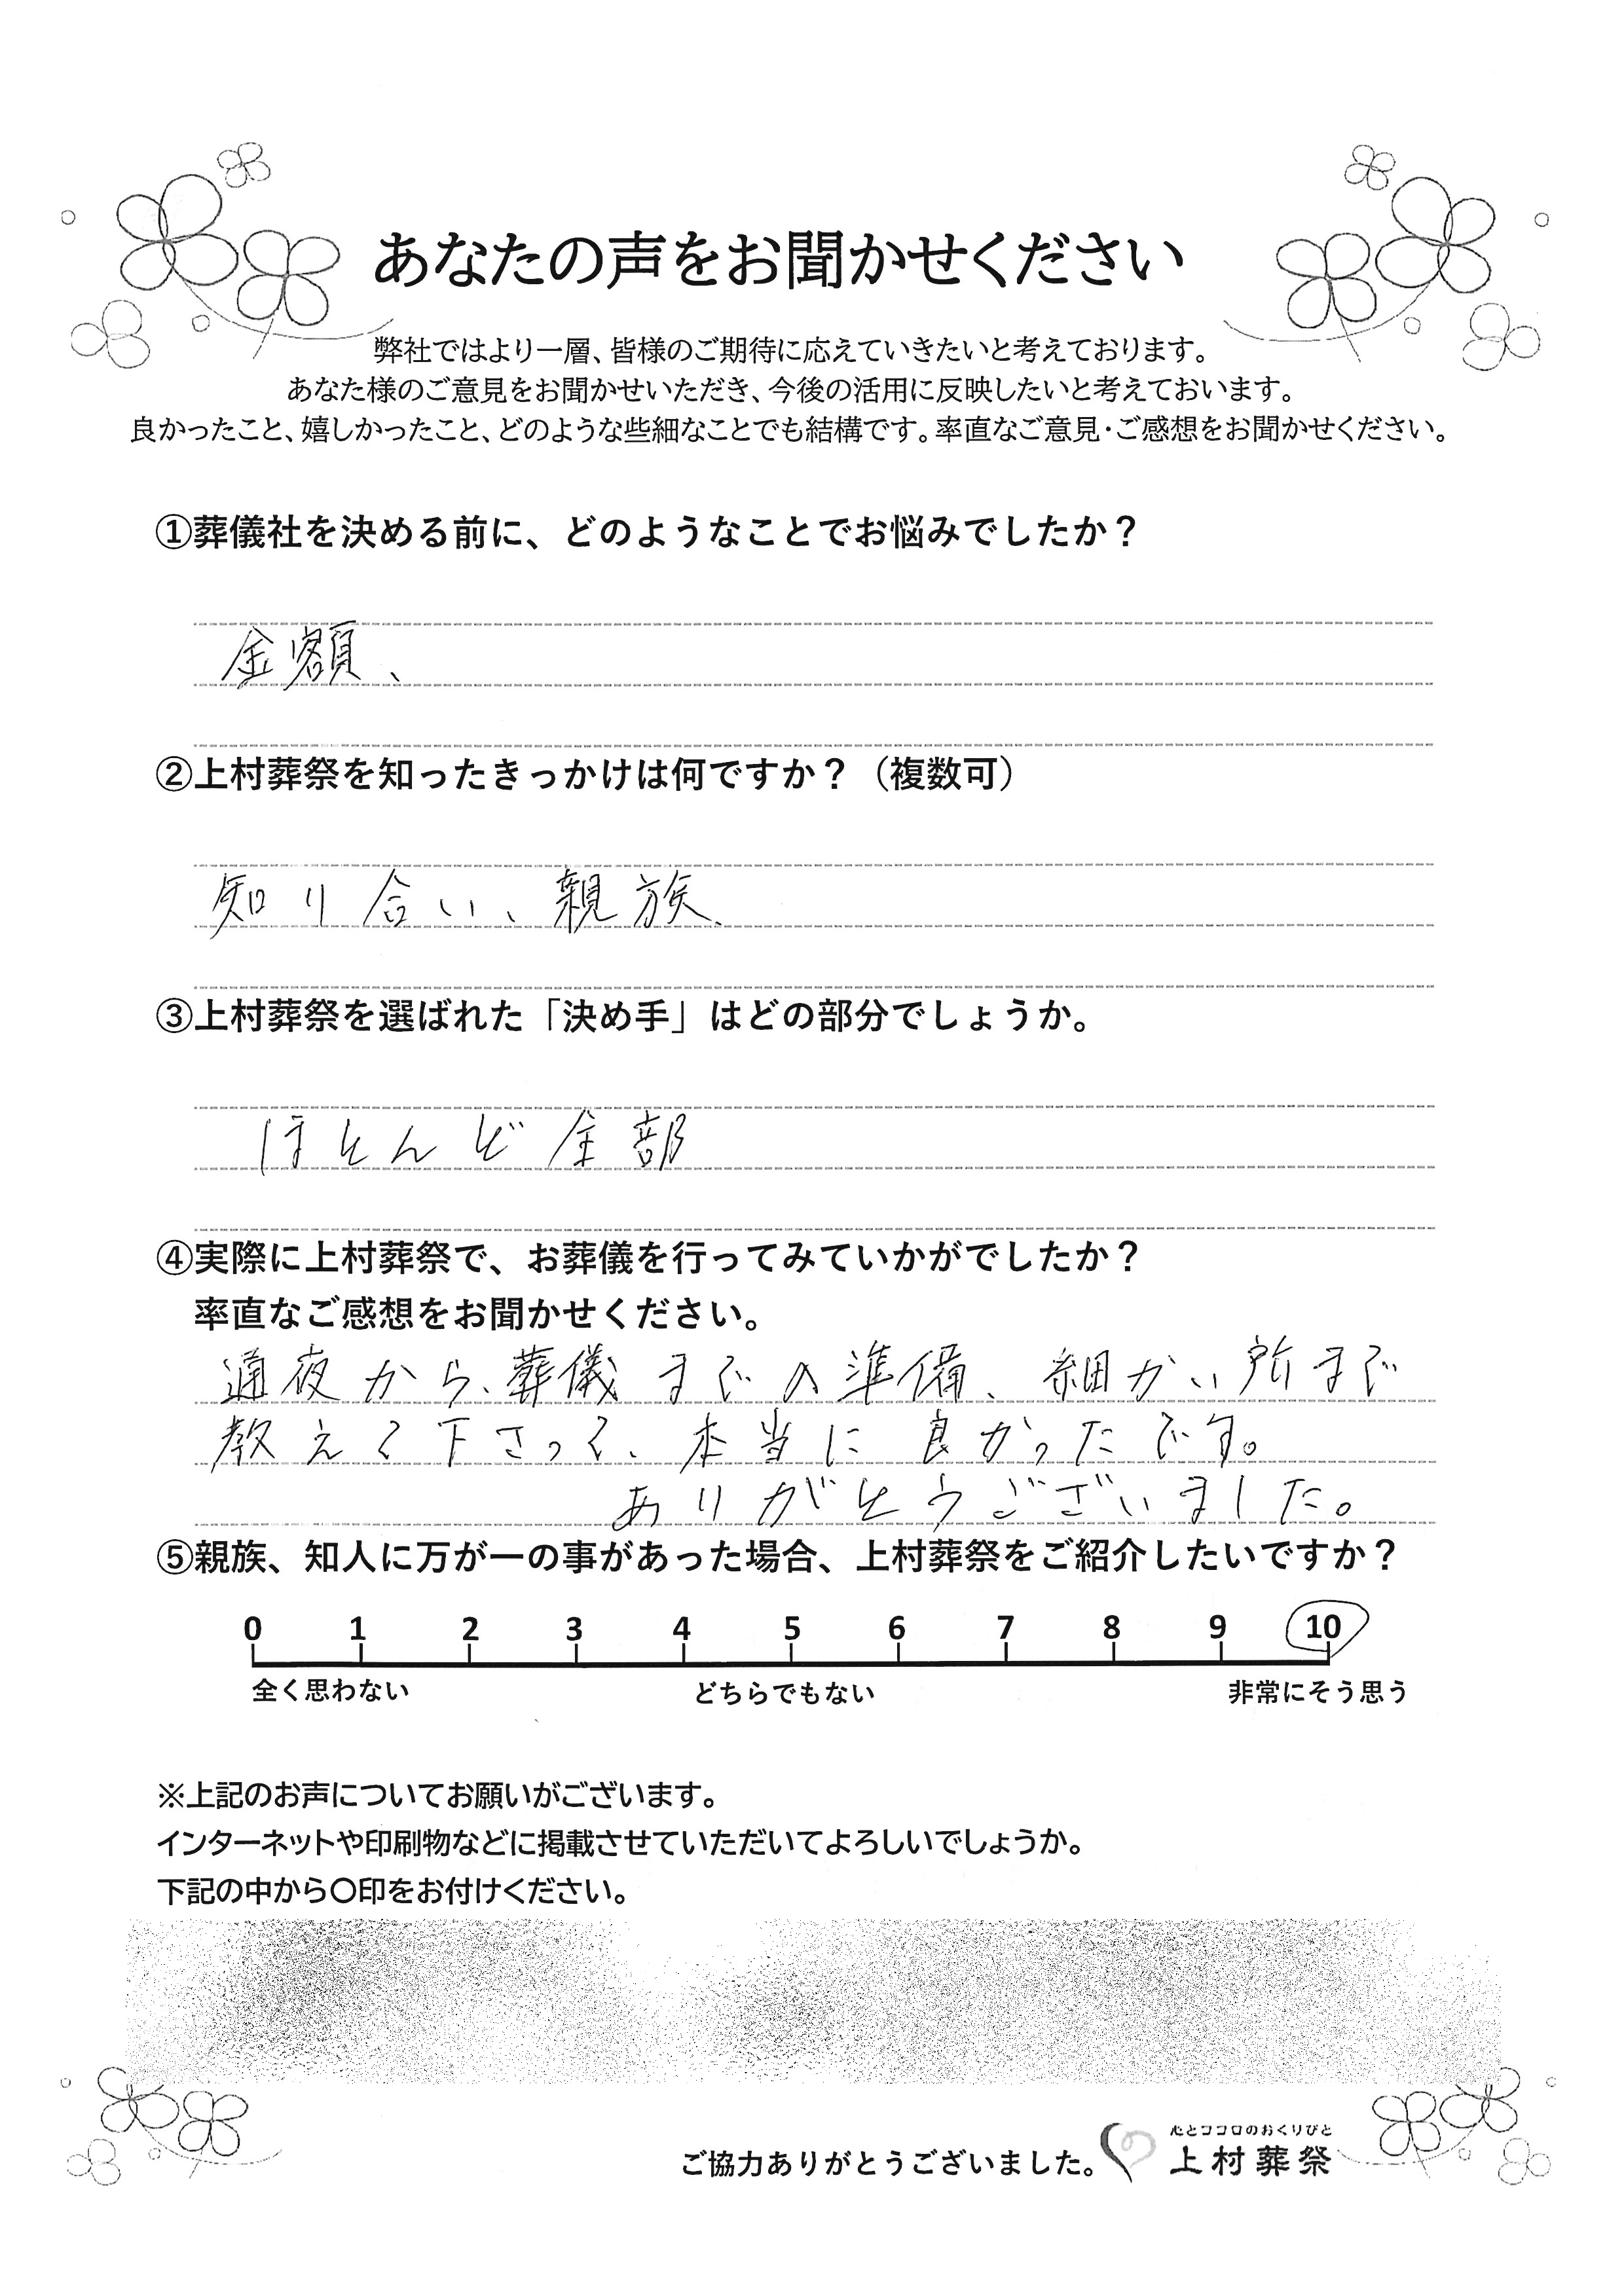 あなたの声をお聞かせください
弊社ではより一層、皆様のご期待に応えていきたいと考えております。
あなた様のご意見をお聞かせいただき、今後の活用に反映したいと考えておいます。
良かったこと、嬉しかったこと、どのような些細なことでも結構です。率直なご意見・ご感想をお聞かせください。
①葬儀社を決める前に、どのようなことでお悩みでしたか？
金額、
②上村葬祭を知ったきっかけは何ですか？（複数可）
知り合い、親族、
③上村葬祭を選ばれた「決め手」はどの部分でしょうか。
ほとんど全部
④実際に上村葬祭で、お葬儀を行ってみていかがでしたか？
率直なご感想をお聞かせください。
通夜から、葬儀までの準備、細かい所まで
教えて下さって、本当に良かったです。
ありがとうございました。
⑤親族、知人に万が一の事があった場合、上村葬祭をご紹介したいですか？
0 1 2 3 4 5 6 7 8 9 10
全く思わない どちらでもない 非常にそう思う
※上記のお声についてお願いがございます。
インターネットや印刷物などに掲載させていただいてよろしいでしょうか。
下記の中から〇印をお付けください。
心とココロのおくりびと
ご協力ありがとうございました。 上村葬祭